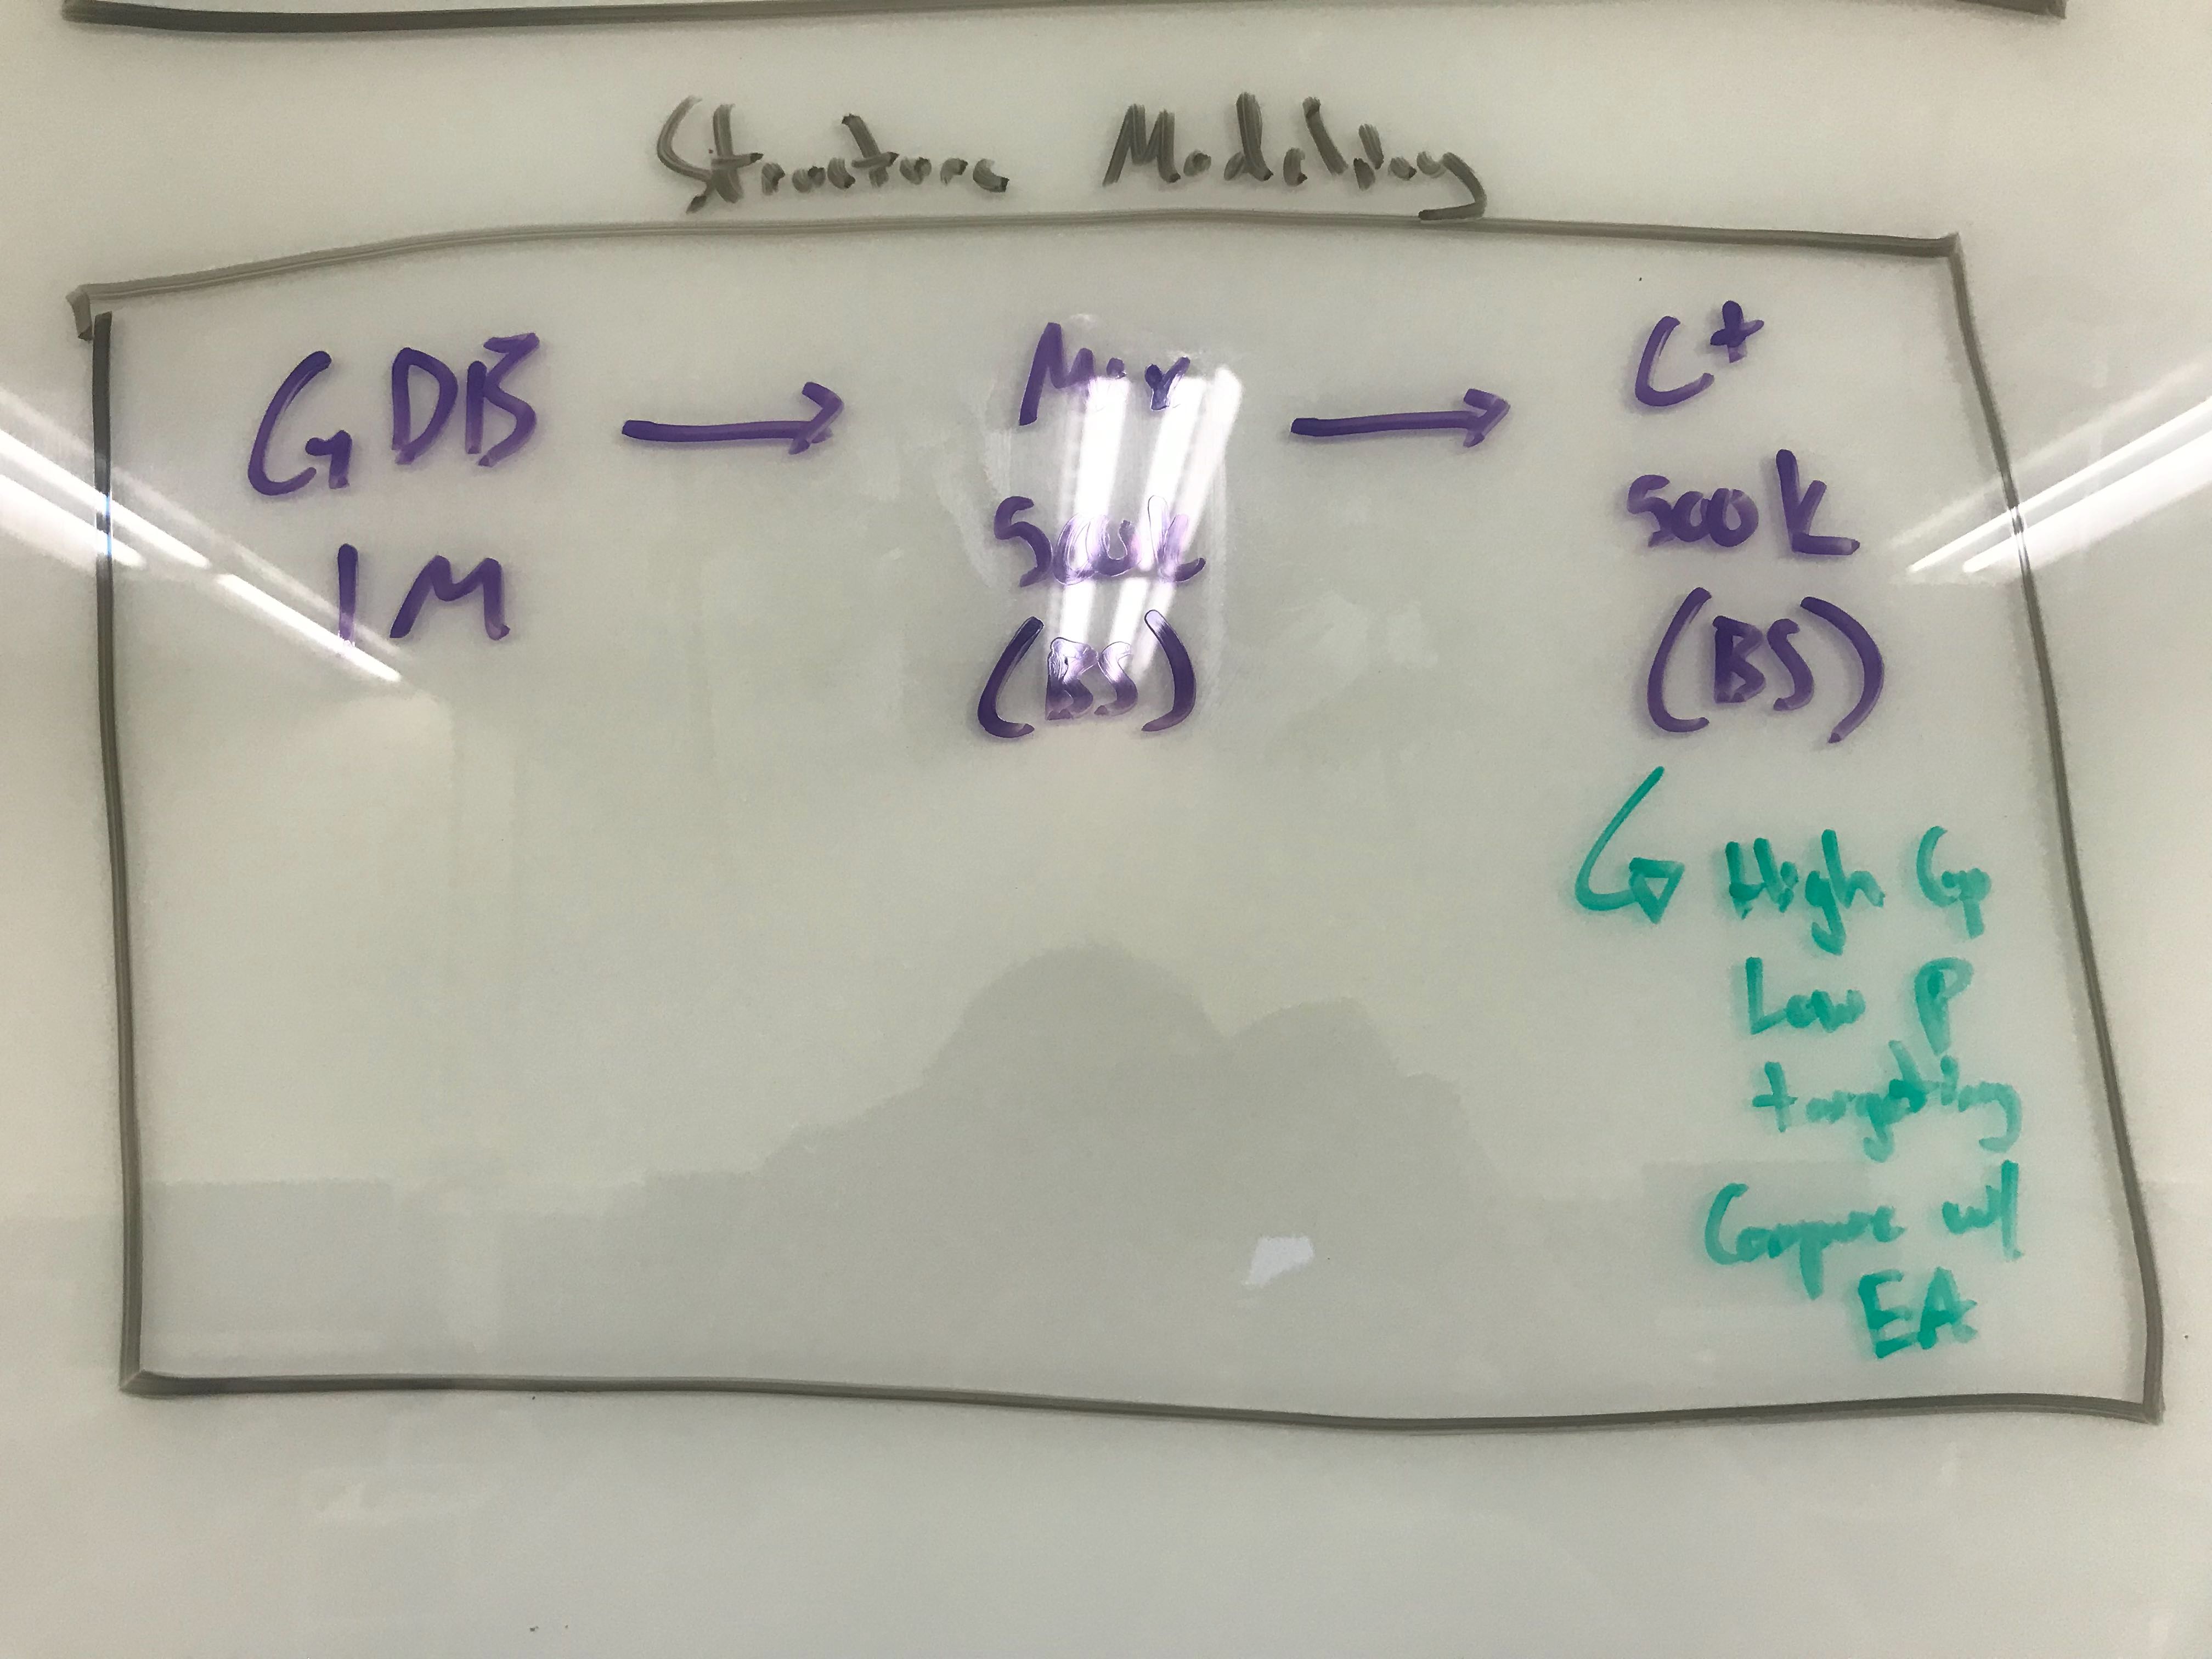 Structure Modeling
GDB → Mix → C+
1M 500k 500k
(BS) (BS)
High Gp
Low P
targeting
Compare w/
EA